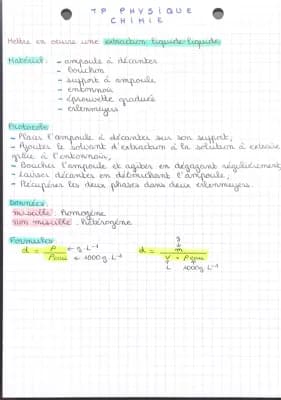 TP PHYSIQUE
CHIMIE
Mettre en oeuvre une extraction liquide-liquide
Matériel : - ampoule à décanter
- bouchon
- support à ampoule
- entonnoir
- éprouvette graduée
- erlenmeyers
Protocole :
- Placer l'ampoule à décanter sur son support,
- Ajouter le solvant d'extraction à la solution à extraire
grâce à l'entonnoir,
- Boucher l'ampoule et agiter en dégazant régulièrement,
- Laisser décanter en débouchant l'ampoule,
- Récupérer les deux phases dans deux erlenmeyers.
Données :
miscible : homogène
non miscible : hétérogène
Formules :
d = ρ / ρeau ← g.L⁻¹ ← 1000g.L⁻¹
d = m / V × ρeau g L 1000g.L⁻¹